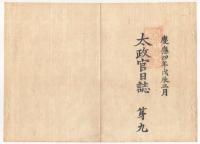 慶應四年戊辰三月
太政官日誌
第九